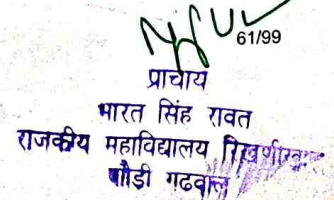 61/99
प्राचार्य
भारत सिंह रावत
राजकीय महाविद्यालय रिखणीखाल
पौडी गढवाल